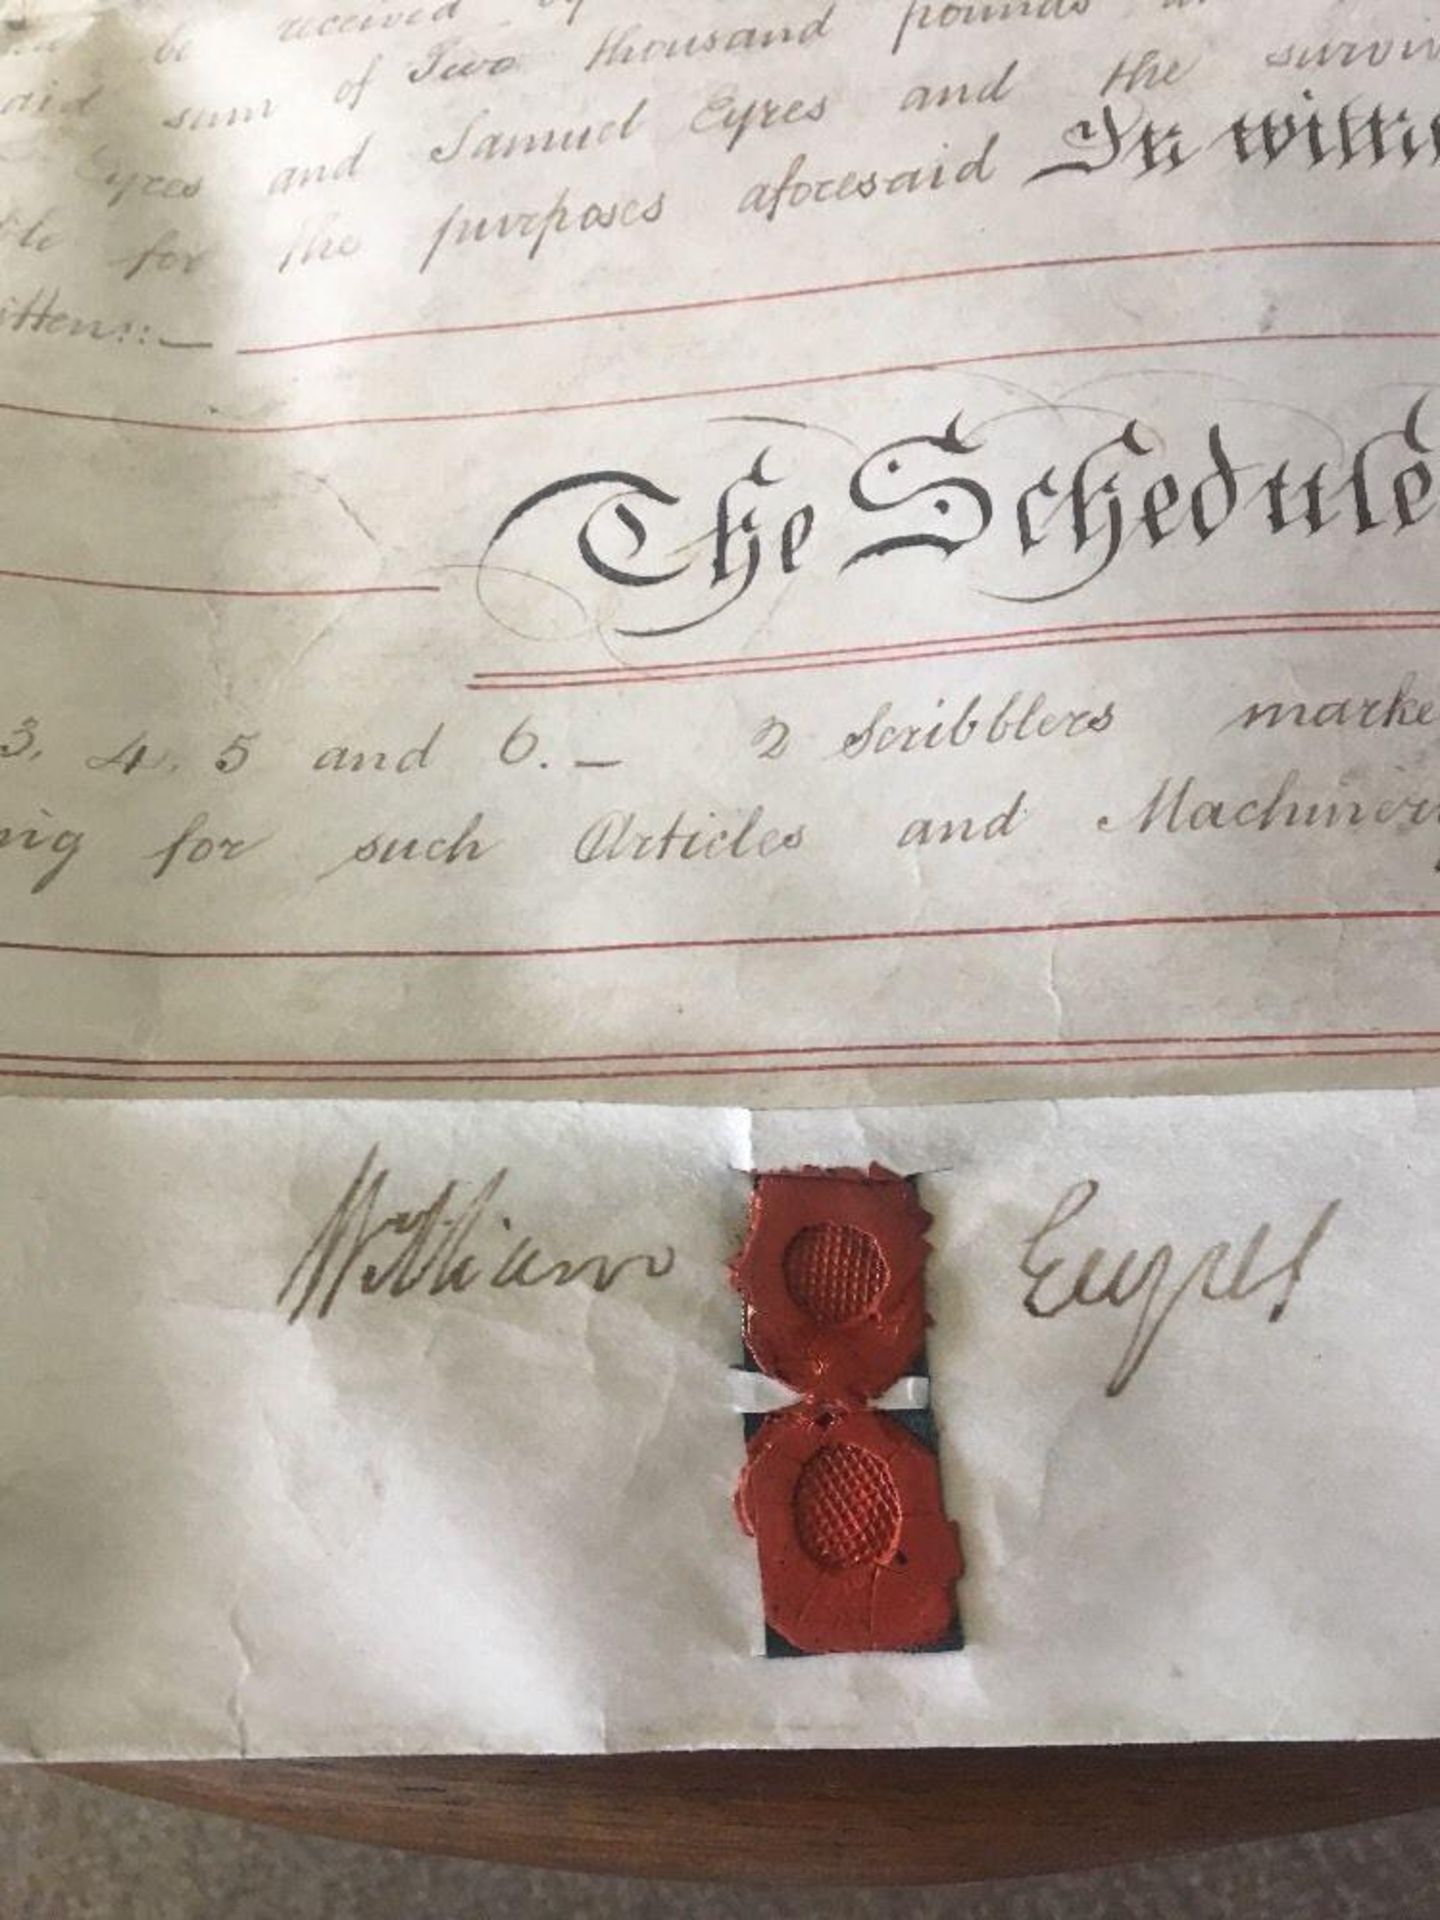 be received by
said sum of Two thousand pounds
Eyres and Samuel Eyres and the surviv
ble for the purposes aforesaid In witne
itten::—
The Schedule
3. 4. 5 and 6. — 2 Scribblers marke
ing for such Articles and Machiner
William Eyres